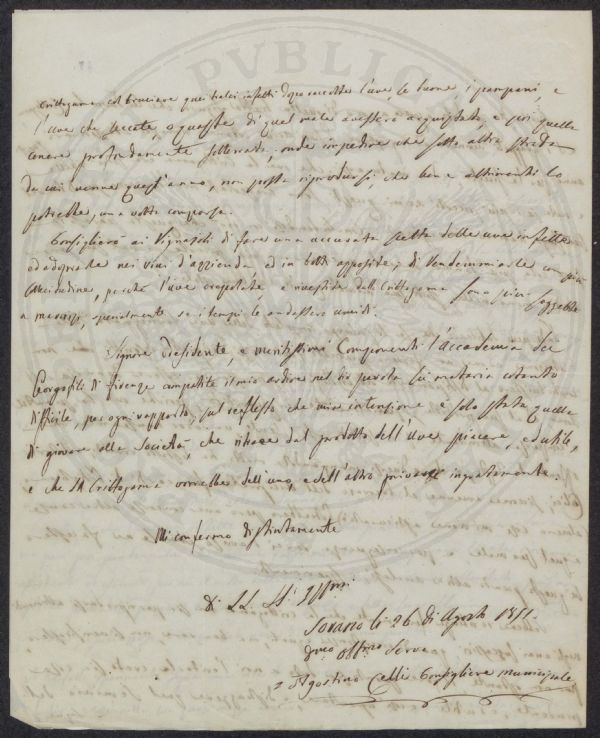 Crittogama col bruciare quei tralci infetti dopo raccolta l'uva, le buone i pampani, e
l'uve che seccate, o guaste di quel male avessero acquistato, e poi quella
cenere profondamente sotterrata; onde impedire che sotto altra strada
da cui venne quest'anno, non possa riprodursi, che bene altrimenti lo
potrebbe, una volta comparsa.
Consiglierò ai Vignajoli di fare una accurata scelta delle uve infette
ed adoprarle nei vini d'azzienda ed in botti apposite; di Vendemmiarle con più
sollecitudine, perchè l'uve e investite dalla Crittogama sono più soggette
a marcirsi, specialmente se i tempi le andassero umidi.
Signore Presidente, e meritissimi Componenti l'accademia dei
Georgofili di Firenze compatite il mio ardire nel dir parola su materia cotanto
difficile, per ogni rapporto, sul reflesso che mia intenzione è solo stata quella
di giovare alla Società, che ritrae dal prodotto dell'Uve piacere, ed utile,
e che la Crittogama vorrebbe dell'uno, e dell'altro privare ingratamente.
Mi confermo distintamente
Di LL. SS. Ill.mi
Sorano li 26 di Agosto 1851.
Offmo Servo
Agostino Celli Consigliere Municipale
PVBLICA